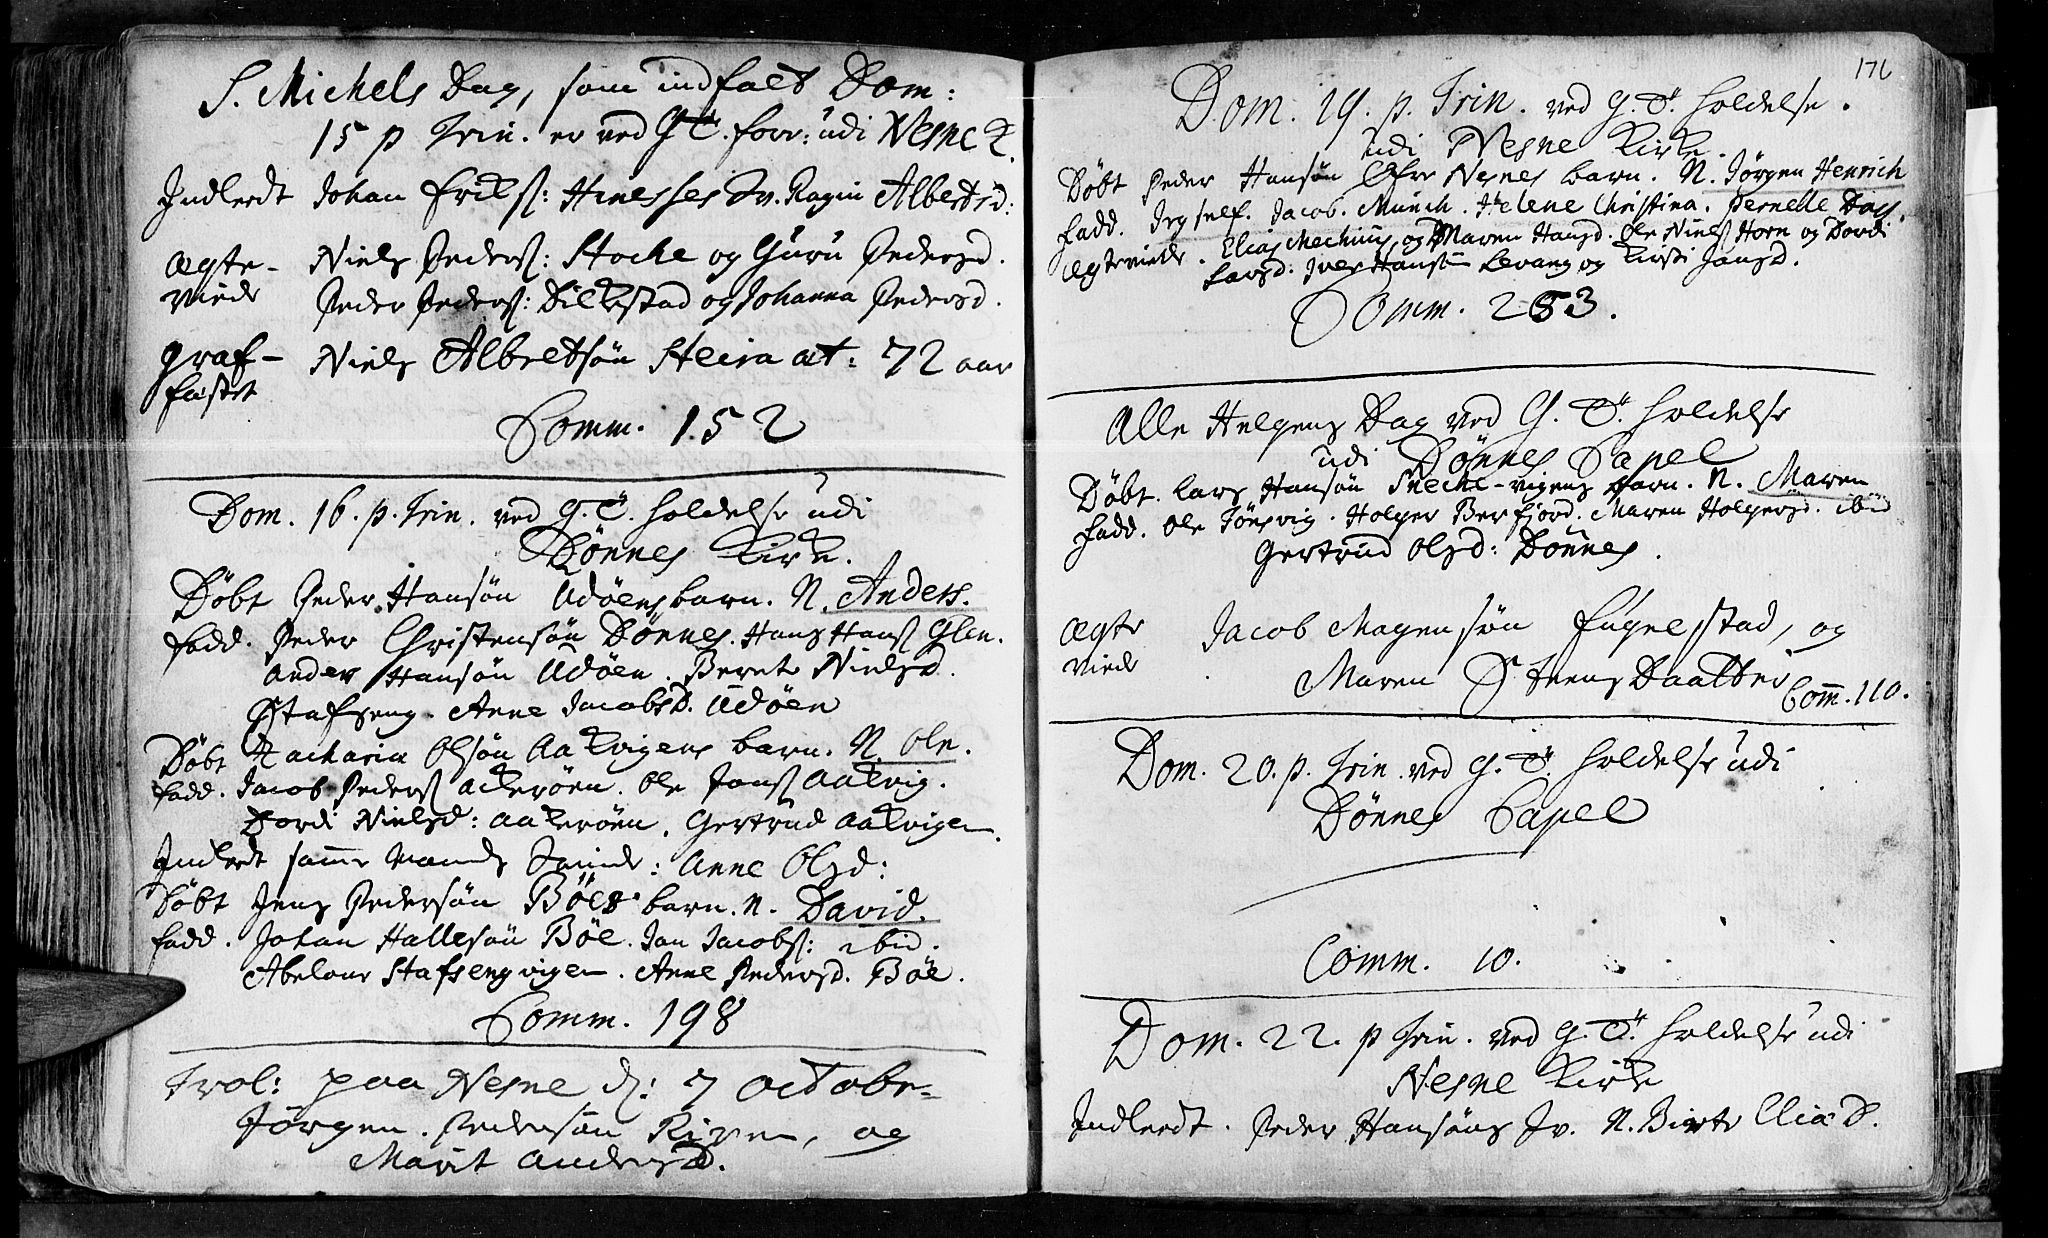 S. Michels Dag, som indfalt Dom:
15 p Trin. er ved G. T. forr: udi Nesne K.
Indledt Johan Eriks: Hinesses Qv. Ragni Albertsd:
Ægte- Niels Peders: Stocke og Guru Pedersd.
viede Peder Peders: Dilkestad og Johanna Pedersd.
graf- Niels Albretsøn Steira æt: 72 aar
fæstet
Comm. 152
Dom. 16. p. Trin. ved G. T. holdelse udi
Dønnes Kirke.
Døbt Peder Hansøn Udøens barn. N. Anders.
fadd. Peder Christensøn Dønnes. Hans Hans Glen.
Anders Hansøn Udøen. Beret Nielsd.
Stafseng. Anne Jacobsd. Udøen
Døbt Zacharia Olsøn Aakvigens barn. N. Ole.
fadd. Jacob Peders Ackerøen. Ole Jons Aakvig.
Dordi Nielsd: Aakerøen. Gertrud Aakvigen.
Indledt samme Mands Qvinde: Anne Olsd:
Døbt Jens Pedersøn Böes barn. N. David.
fadd. Johan Hallesøn Böe. Jan Jacobs: ibid.
Abelone Stafsengvigen. Anne Pedersd. Böe.
Comm. 198
Trol: paa Nesne d: 7 Octobr.
Jörgen Pedersøn, og
Marit Andersd.
171
Dom. 19. p. Trin. ved G. T. holdelse.
udi Nesne Kirke.
Døbt Peder Hansøn Nesnes barn. N. Jørgen Henrich
fadd. Jeg self. Jacob Münch. Helene Christina. Pernelle Dass.
Ægteviede. Elias Mechius og Maren Hansd. Ole Niels Horn og Dordi
Larsd: Iver Hansøn Levang og Kirsti Jonsd.
Comm. 253.
Alle Helgens Dag ved G. T. holdelse
udi Dønnes Capel
Døbt. Lars Hansøn Snecke-vigens barn. N. Maren
fadd. Ole Tønsvig. Holger Berfjord. Maren Holgersd. ibid
Gertrud Olsd: Dønnes.
Ægte Jacob Mogensøn Fugelstad, og
viede Maren Steens Daatter
Comm. 110.
Dom. 20. p. Trin. ved G. T. holdelse udi
Dønnes Capel
Comm. 10.
Dom. 22. p Trin. ved G. T. holdelse udi
Nesne Kirke
Indledt. Peder Hansøns Qv. N. Birte Eliæ D.